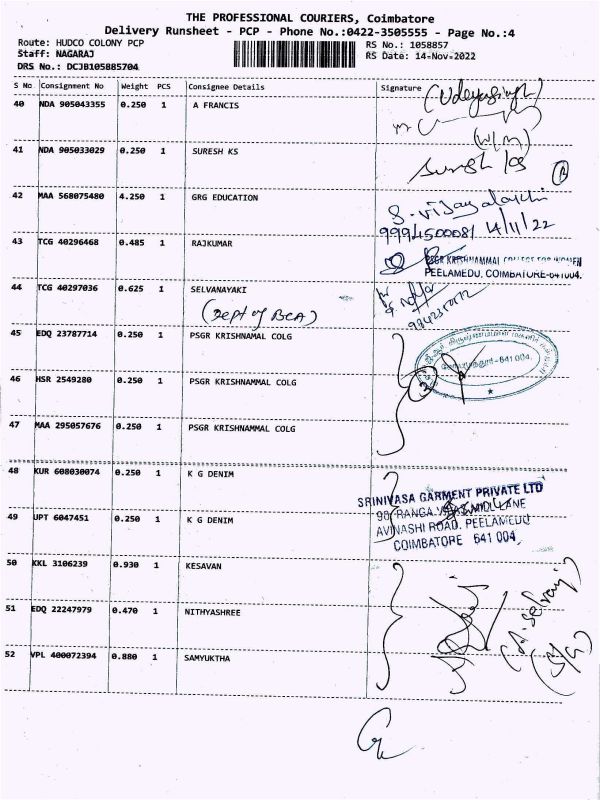 THE PROFESSIONAL COURIERS, Coimbatore
Delivery Runsheet - PCP - Phone No.:0422-3505555 - Page No.:4
Route: HUDCO COLONY PCP
Staff: NAGARAJ
DRS No.: DCJB105885704
RS No.: 1058857
RS Date: 14-Nov-2022
S No Consignment No Weight PCS Consignee Details Signature
40 NDA 905043355 0.250 1 A FRANCIS
(Udayasingh)
41 NDA 905033029 0.250 1 SURESH KS
Suresh KS
42 MAA 568075480 4.250 1 GRG EDUCATION
S. Vijayalakshi
9994500081 14/11/22
43 TCG 40296468 0.485 1 RAJKUMAR
PSGR KRISHNAMMAL COLLEGE FOR WOMEN
PEELAMEDU, COIMBATORE-641004.
44 TCG 40297036 0.625 1 SELVANAYAKI
(Dept of BCA)
45 EDQ 23787714 0.250 1 PSGR KRISHNAMMAL COLG
641 004.
46 HSR 2549280 0.250 1 PSGR KRISHNAMMAL COLG
3
47 MAA 295057676 0.250 1 PSGR KRISHNAMMAL COLG
48 KUR 608030074 0.250 1 K G DENIM
SRINIVASA GARMENT PRIVATE LTD
90, RANGA MILL LANE
49 UPT 6047451 0.250 1 K G DENIM
AVINASHI ROAD, PEELAMEDU
COIMBATORE 641 004,
50 KKL 3106239 0.930 1 KESAVAN
51 EDQ 22247979 0.470 1 NITHYASHREE
(A. Selvaraj)
52 VPL 400072394 0.880 1 SAMYUKTHA